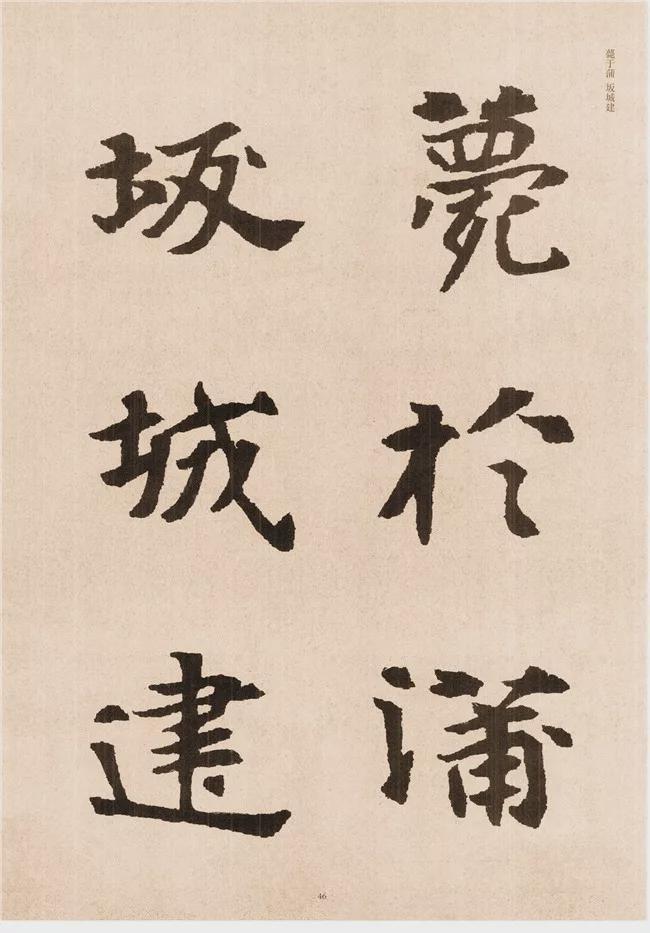 薨于蒲 坂城建
薨於蒲
坂城建
46